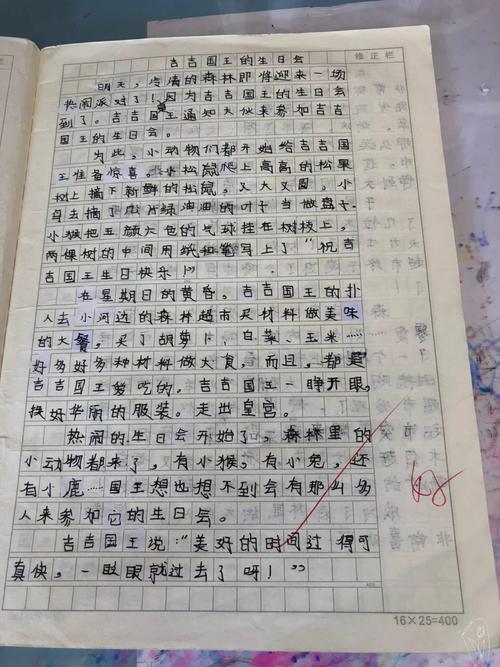 吉吉国王的生日会
修正栏
明天，冷清的森林即将迎来一场
热闹派对了！因为吉吉国王的生日会
到了。吉吉国王通知大伙来参加吉吉
国王的生日会。
为此，小动物们都开始给吉吉国
王准备惊喜。小松鼠爬上高高的松果
树上摘下新鲜的松鼠，又大又圆。小
鸟去摘了几片绿油油的叶子当做盘子，
小猴把五颜大色的气球挂在树枝上，
两棵树的中间用纸和笔写上了“祝吉
吉国王生日快乐！”
在星期日的黄昏。吉吉国王的仆
人去小河边的森林超市买材料做美味
的大餐。买了胡萝卜、白菜、玉米……
好多好多种材料做大食，而且，都是
吉吉国王爱吃的。吉吉国王一睁开眼。
换好华丽的服装。走出皇宫。
热闹的生日会开始了，森林里的
小动物都来了，有小猴，有小兔，还
有小鹿……国王想也想不到会有那么多
人来参加它的生日会。
吉吉国王说：“美好的时间过得可
真快，一眨眼就过去了呀！”
好
16×25=400